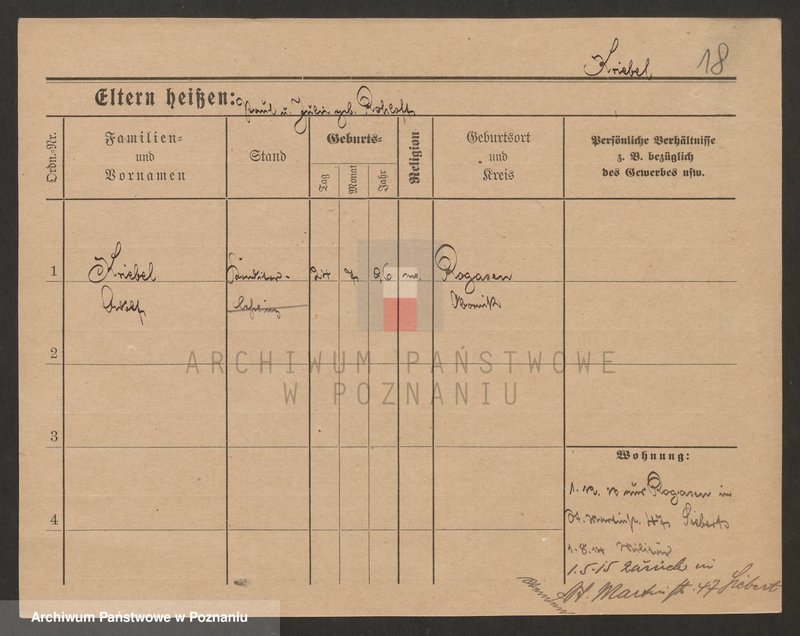 Kriebel 18
Eltern heißen: Paul u. Julie geb.
Ordn.-Nr.
Familien-
und
Vornamen
Stand
Geburts-
Tag
Monat
Jahr
Religion
Geburtsort
und
Kreis
Persönliche Verhältnisse
z. B. bezüglich
des Gewerbes usw.
1 Kriebel Conditor- 24 7 96 Rogasen
Obornik
ARCHIWUM PAŃSTWOWE
W POZNANIU
2
3
4
Wohnung:
aus Rogasen in
St. Martinstr. 47 Siebert
Militär
1.5.15 zurück in
St. Martinstr. 47 Siebert
Archiwum Państwowe w Poznaniu